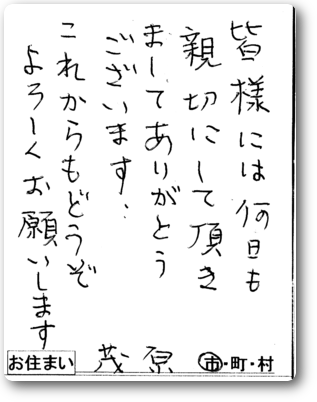 皆様には何日も
親切にして頂き
ましてありがとう
ございます.
これからもどうぞ
よろしくお願いします
お住まい 茂原 市・町・村